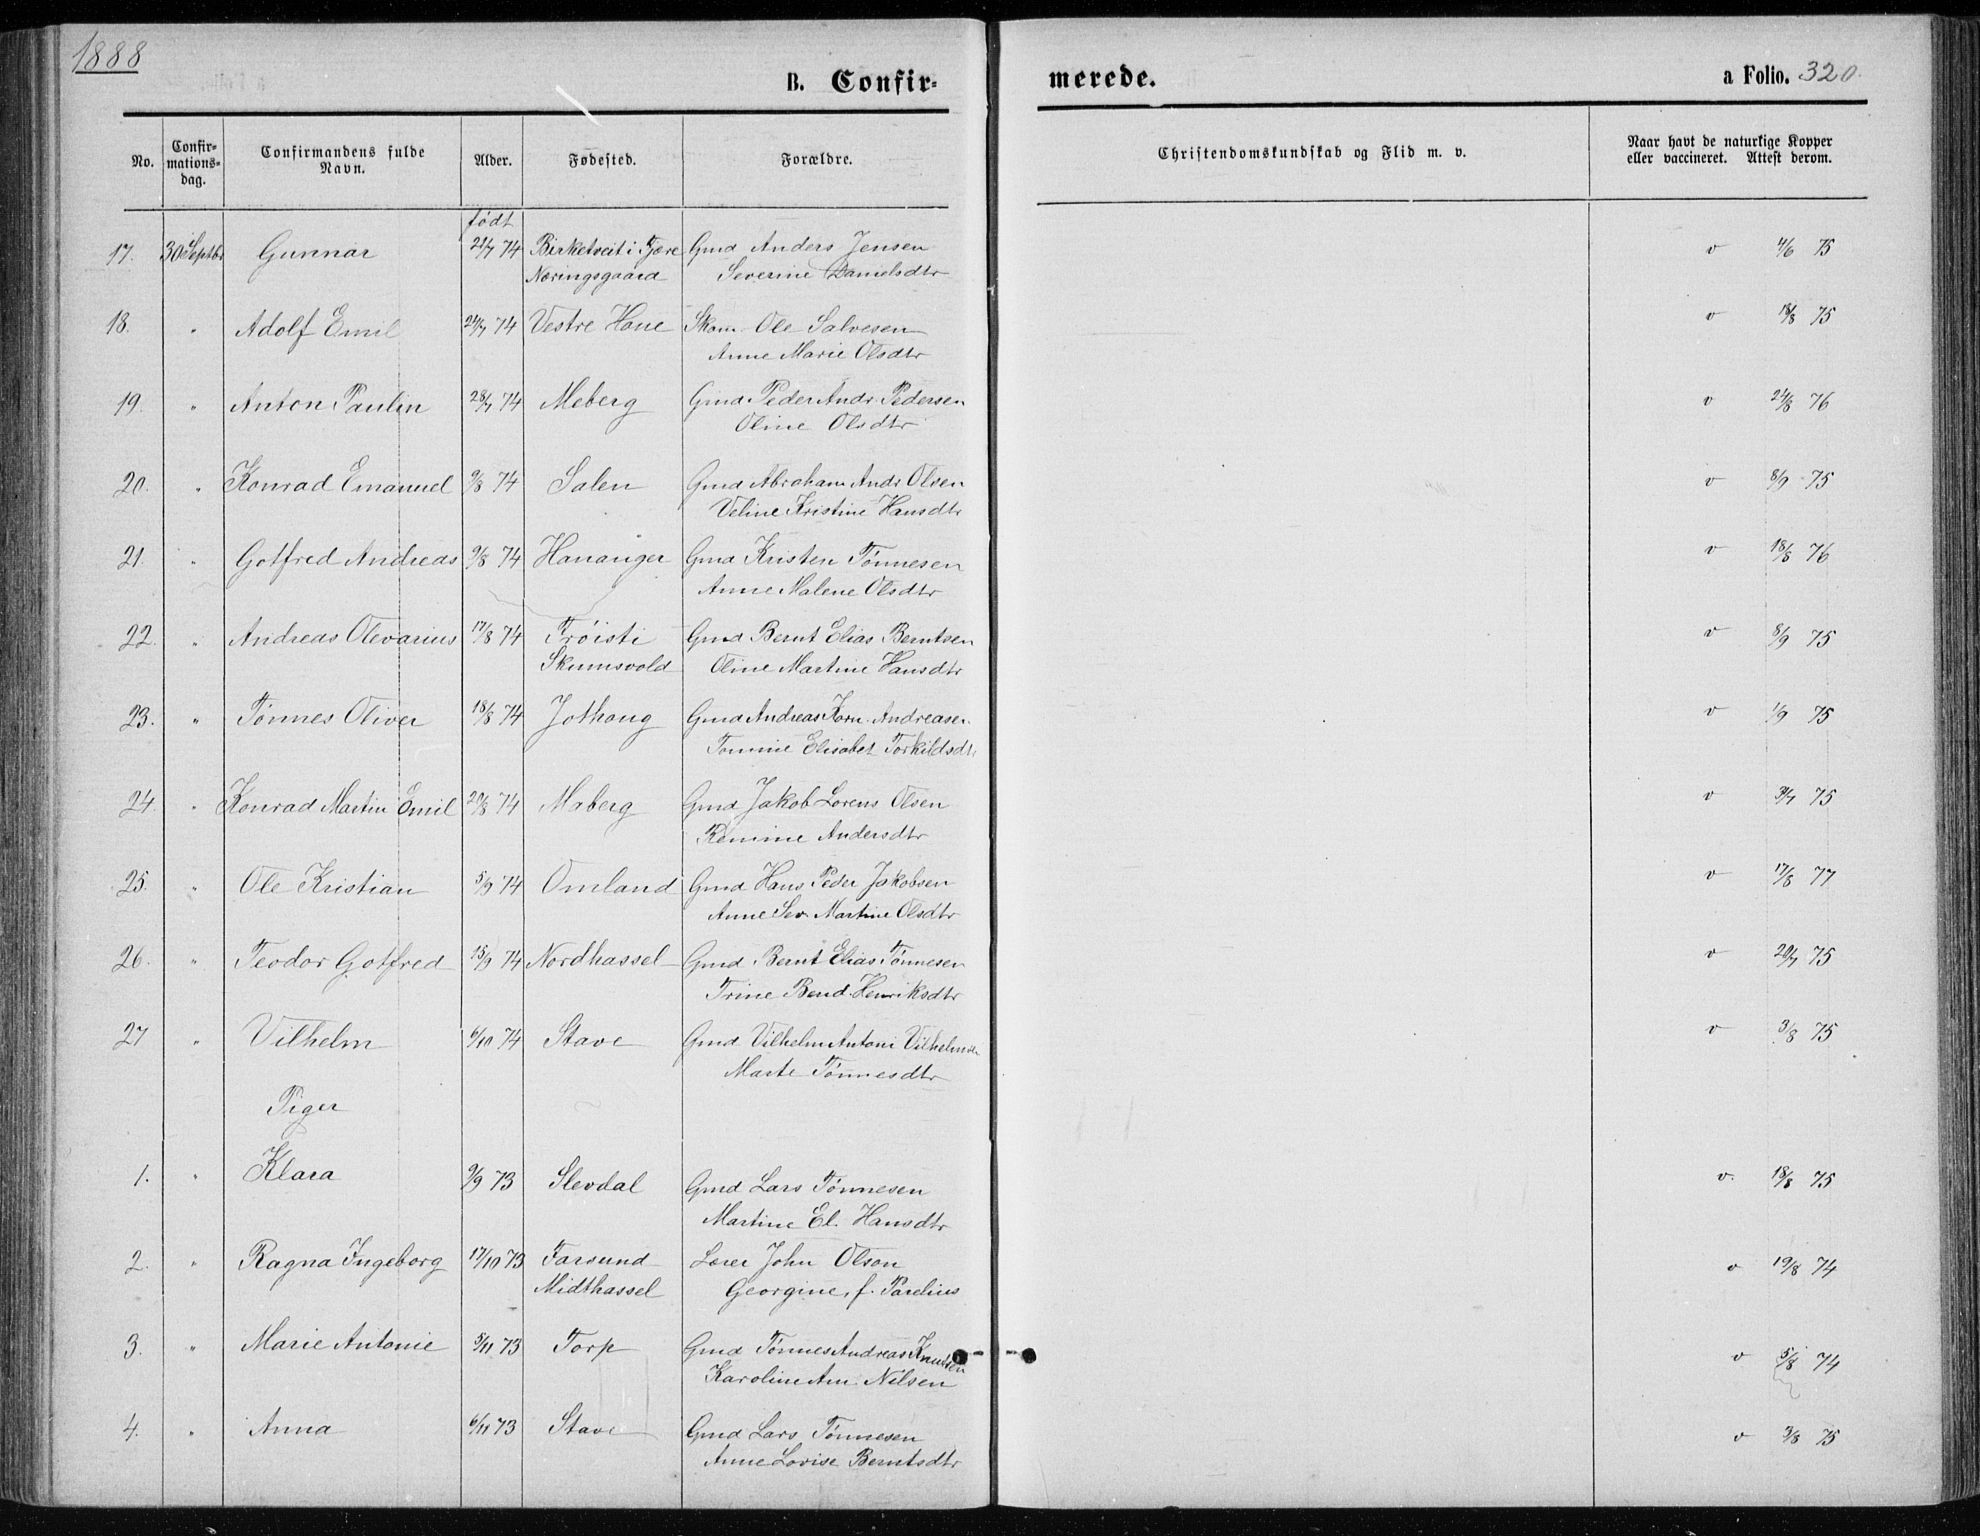 1888
B. Confir-
merede.
a Folio. 320.
No. Confir-mations-dag. Confirmandens fulde Navn. Alder. Fødested. Forældre. Christendomskundskab og Flid m. v. Naar havt de naturlige Kopper eller vaccineret. Attest derom.
født
17. 30 Septbr Gunnar 21/7 74 Birketveit i Fjære Gmd Anders Jensen v 4/6 75
Næringsgaard Severine Danielsdtr
18. " Adolf Emil 24/7 74 Vestre Hane Skom. Ole Salvesen v 18/8 75
Anne Marie Olsdtr
19. " Anton Paulin 28/7 74 Meberg Gmd Peder Andr. Pedersen v 24/8 76
Oline Olsdtr
20. " Konrad Emanuel 9/8 74 Salen Gmd Abraham Andr Olsen v 8/9 75
Veline Kristine Hansdtr
21. " Gotfred Andreas 9/8 74 Hananger Gmd Kristen Tønnesen v 18/8 76
Anne Malene Olsdtr
22. " Andreas Olevarius 17/8 74 Trøisti Gmd Bernt Elias Berntsen v 8/9 75
Skumsvold Oline Martine Hansdtr
23. " Tønnes Oliver 18/8 74 Jøthaug Gmd Andreas Korn. Andreasen v 1/9 75
Tomine Elisabet Torkildsdtr
24. " Konrad Martin Emil 29/8 74 Maberg Gmd Jakob Lorens Olsen v 3/7 75
Remine Andersdtr
25. " Ole Kristian 5/9 74 Omland Gmd Hans Peder Jakobsen v 17/8 77
Anne Sev. Martine Olsdtr
26. " Teodor Gotfred 15/9 74 Nordhassel Gmd Bernt Elias Tønnesen v 20/7 75
Trine Bend. Henriksdtr
27 " Vilhelm 6/10 74 Stave Gmd Vilhelm Antoni Vilhelmsen v 3/8 75
Marte Tønnesdtr
Piger
1. " Klara 9/9 73 Slevdal Gmd Lars Tønnesen v. 18/8 75
Martine El. Hansdtr
2. " Ragna Ingeborg 17/10 73 Farsund Lærer John Olson v 19/8 74
Midthassel Georgine, f. Parelius
3. " Marie Antonie 5/11 73 Torp Gmd Tønnes Andreas Knutsen v 5/8 74
Karoline Am. Nilsen
4. " Anna 6/11 73 Stave Gmd Lars Tønnesen v 3/8 75
Anne Lovise Berntsdtr